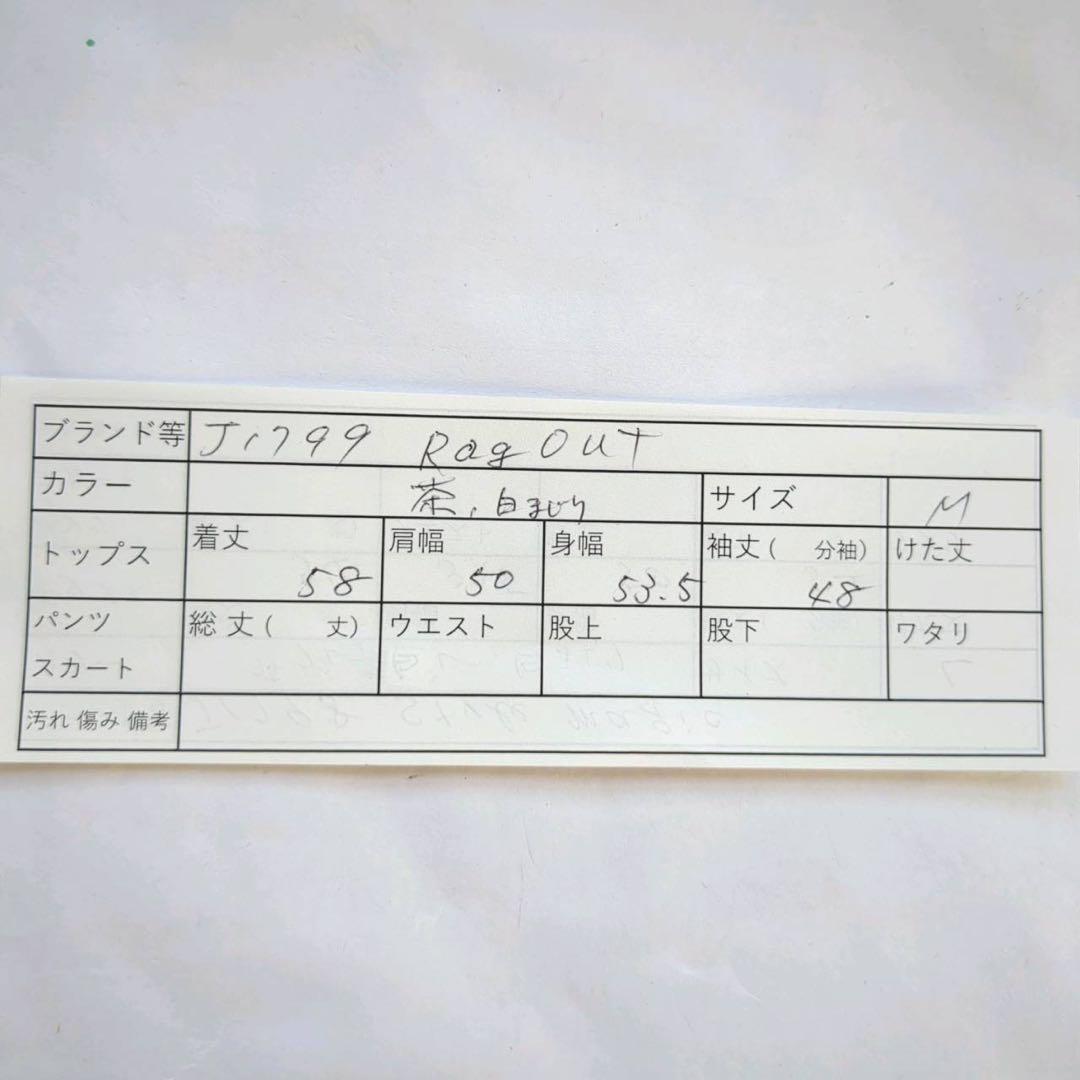 ブランド等 J1799 RagOUT
カラー 茶、白まじり サイズ M
トップス 着丈 58 肩幅 50 身幅 53.5 袖丈( 分袖) 48 けた丈
パンツ スカート 総丈( 丈) ウエスト 股上 股下 ワタリ
汚れ 傷み 備考